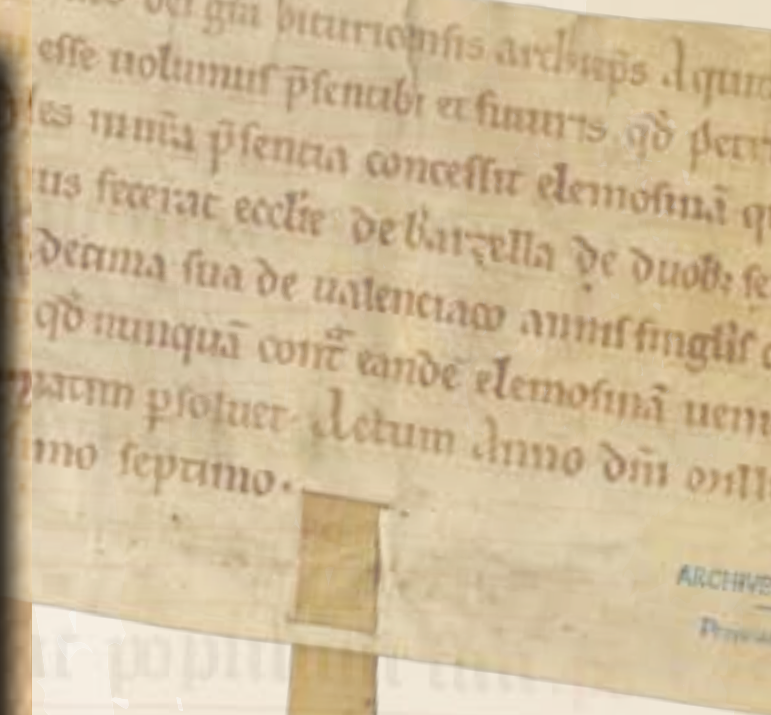 dei gr̄a bituricensis archiep̄s
esse uolumus p̄sentib; et futuris qđ petr
es in nr̄a p̄sentia concessit elemosinā q
us fecerat eccl̄ie de barzella de duob; se
decima sua de ualenciaco annis singlis
qđ nunquā cont̄ eande elemosinā ueni
ꝑsoluet. Actum Anno dn̄i mill
mo septimo.
ARCHIVE